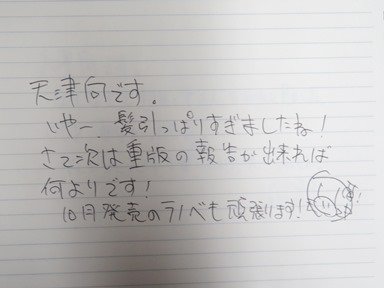 天津向です。
いやー、髪引っぱりすぎましたね!
さて次は重版の報告が出来れば
何よりです!
10月発売のラノベも頑張ります!